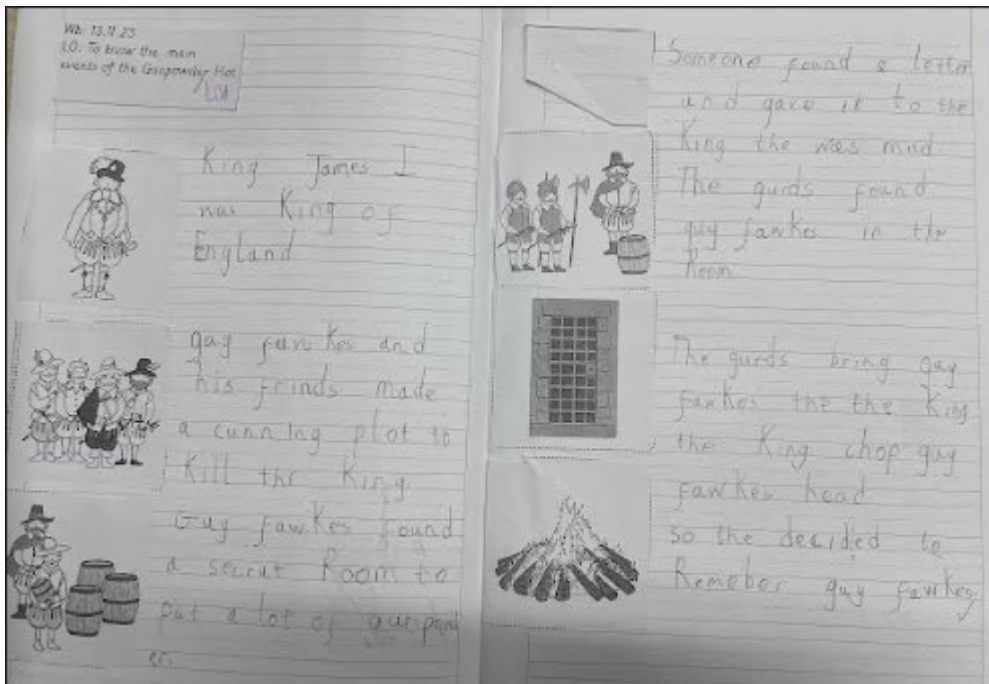 Wb: 13.11.23
LO: To know the main
events of the Gunpowder Plot
King James I
was King of
England
guy fawkes and
his frinds made
a cunning plot to
Kill the King.
Guy fawkes found
a secrut Room to
put a lot of
er.
Someone found a letter
and gave it to the
King the was mad.
The gurds found
guy fawkes in the
Room
The gurds bring guy
fawkes the the King
the King chop guy
fawkes head
so the decided to
Remeber guy fawkes